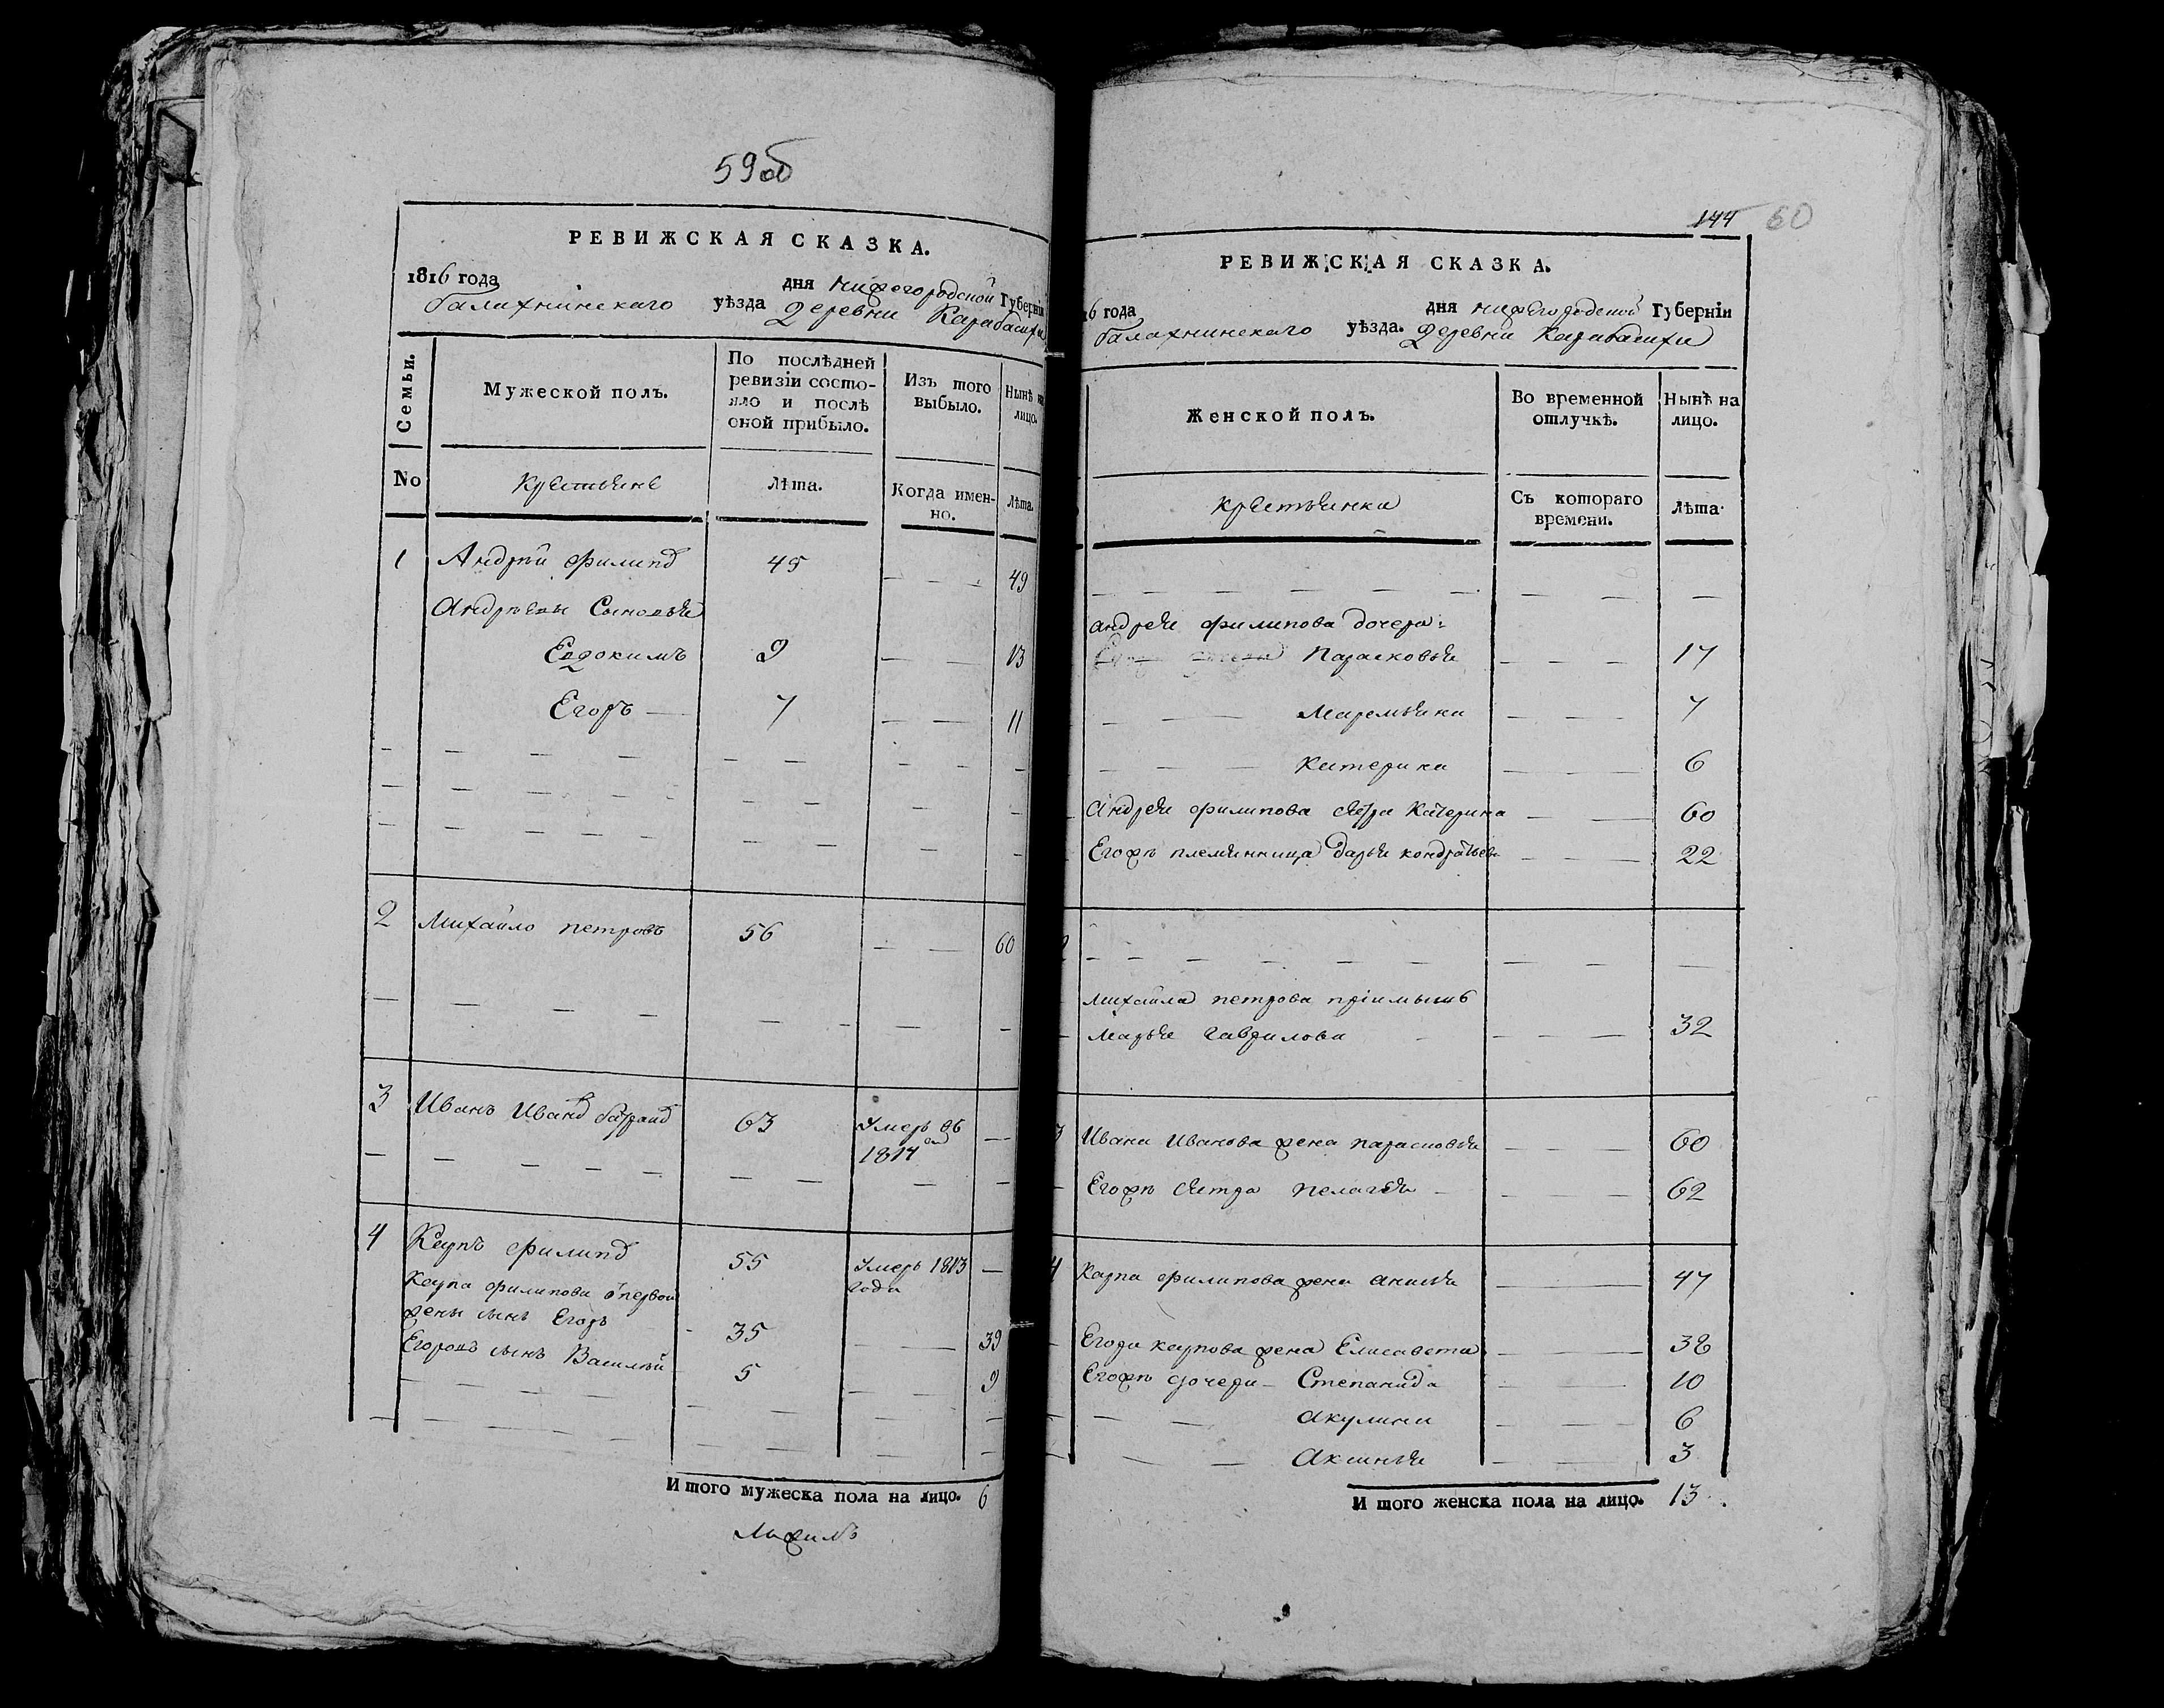 59об
РЕВИЖСКАЯ СКАЗКА.
1816 года дня нижегородской Губерніи
балахнинскаго уѣзда деревни Карабасихи
Семьи.
Мужеской полъ.
По послѣдней ревизіи состояло и послѣ оной прибыло.
Изъ того выбыло.
Нынѣ на лицо.
No
крестьяне
Лѣта.
Когда именно.
Лѣта.
1 Андрѣй Филипов 45 — — — 49
Андрѣевы Сыновья
Евдокимъ 9 — — 13
Егоръ — 7 — — 11
2 Михайло петровъ 56 — — 60
3 Иванъ Иванов 63 Умеръ въ —
1814
4 Карпъ филипов 55 Умеръ 1813 —
года
Карпа филипова первой
жены сынъ Егоръ 35 — — 39
Егоровъ сынъ Василѣй 5 — — 9
И того мужеска пола на лицо. 6
144 60
РЕВИЖСКАЯ СКАЗКА.
6 года дня нижегородской Губерніи
балахнинскаго уѣзда. деревни Карабасихи
Женской полъ.
Во временной отлучкѣ.
Нынѣ на лицо.
крестьянки
Съ котораго времени.
Лѣта.
андрея филипова дочери:
Парасковья — — — 17
Маремьяна — — 7
Катерина — — 6
андрея филипова сестра Катерина — — 60
Егожъ племянница дарья кондратьева — — 22
Михайла петрова пріимышъ
Марья гаврилова — — — 32
3 Ивана Иванова жена парасковья — — — 60
Егожъ сестра пелагѣя — — — 62
4 Карпа филипова жена анисья — — 47
Егора карпова жена Елисавета — — 38
Егожъ дочери — Степанида — — 10
акулина — — 6
Аксинья — — 3
И того женска пола на лицо. 13.